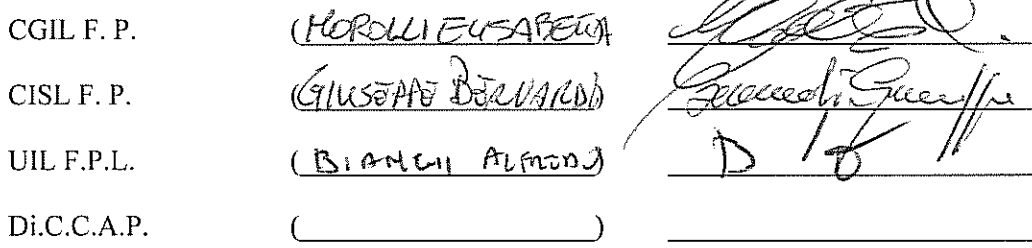 CGIL F. P. (MOROLLI ELISABETTA
CISL F. P. (GIUSEPPE BERNARDI)
UIL F.P.L. (BIANCHI ALFREDO)
Di.C.C.A.P. ( )